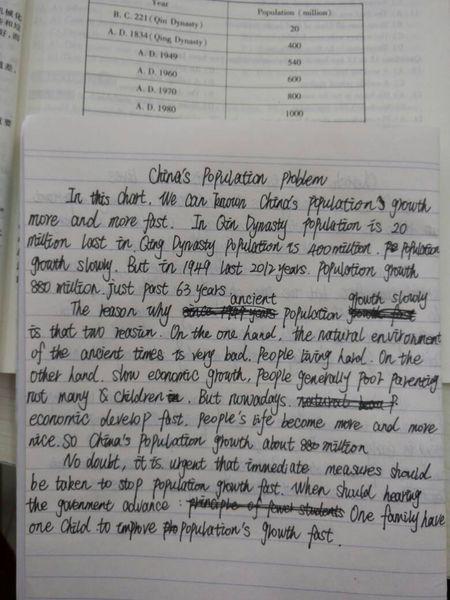 机械化
Year Population (million)
B. C. 221 (Qin Dynasty) 20
A. D. 1834 (Qing Dynasty) 400
A. D. 1949 540
A. D. 1960 600
A. D. 1970 800
A. D. 1980 1000
China's Population problem
In this chart. We can known China's population's growth
more and more fast. In Qin Dynasty population is 20
million last in Qing Dynasty population is 400 million. population
growth slowly. But in 1949 last 2012 years. Population growth
880 million. Just past 63 years
The reason why ancient population growth slowly
is that two reasin. On the one hand. the natural environment
of the ancient times is very bad. People living hard. On the
other hand. slow economic growth, People generally poor parenting
not many children. But nowadays.
economic develop fast. People's life become more and more
nice. So China's population growth about 880 million
No doubt, it is urgent that immediate measures should
be taken to stop population growth fast. When should hearing
the government advance : One family have
one child to improve population's growth fast.